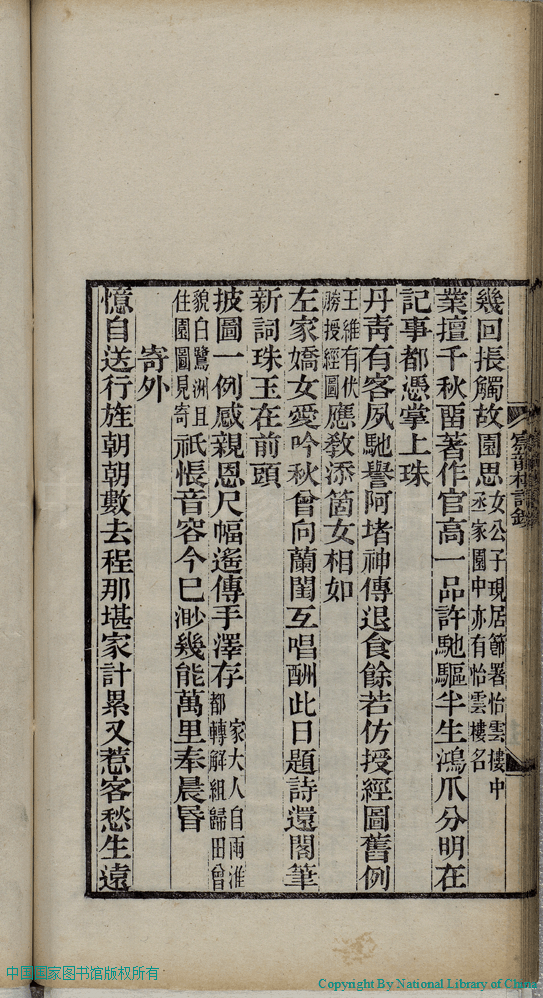 幾回掁觸故園思女公子現居節署怡雲樓中丞家園中亦有怡雲樓名
業擅千秋畱著作官高一品許馳驅半生鴻爪分明在
記事都憑掌上珠
丹靑有客夙馳譽阿堵神傳退食餘若仿授經圖舊例
王維有伏勝授經圖應敎添箇女相如
左家嬌女愛吟秋曾向蘭閨互唱酬此日題詩還閣筆
新詞珠玉在前頭
披圖一例感親恩尺幅遙傳手澤存家大人自兩淮都轉解組歸田曾
貌白鷺洲且住園圖見寄祇悵音容今已渺幾能萬里奉晨昏
寄外
憶自送行旌朝朝數去程那堪家計累又惹客愁生遠
中国国家图书馆版权所有
Copyright By National Library of China